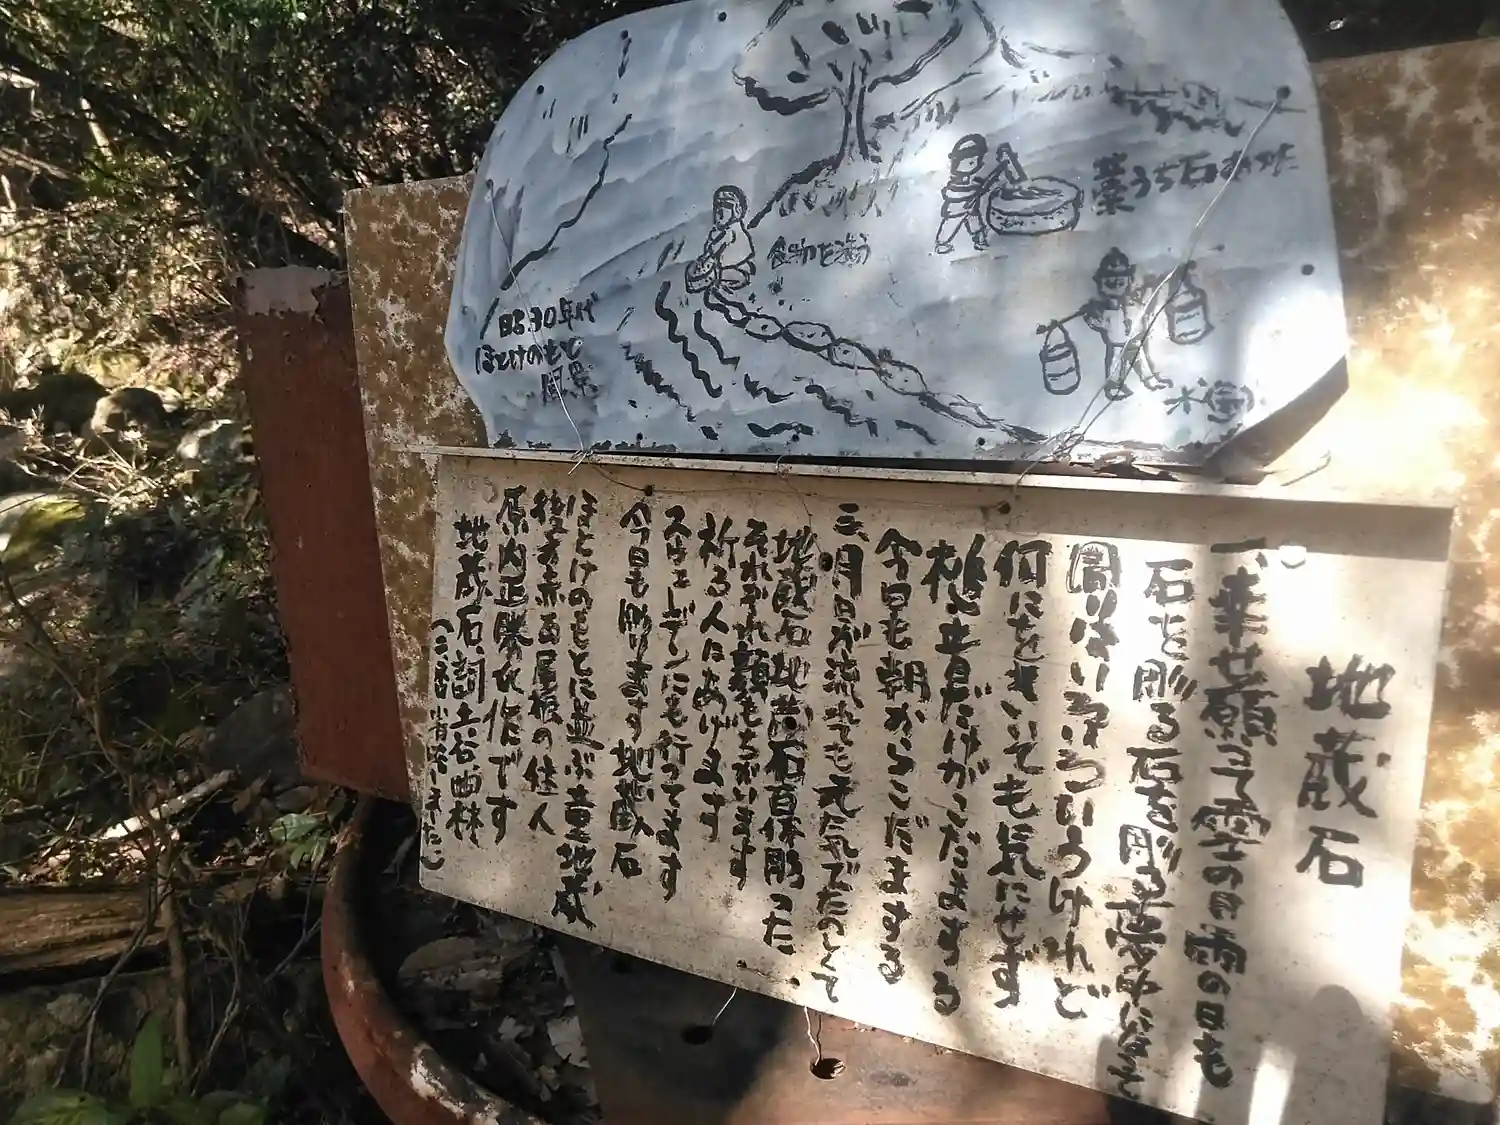 藁うち石
食物を洗う
昭30年代
ほとけのもと
風景
地蔵石
一、幸せ願って雪の日雨の日も
石を彫る石を彫る夢中になって
周りはいろいろいうけれど
何にをきいても気にせず
音だけがこだまする
今日も朝からこだまする
月日が流れても元気で
地蔵石地蔵石百体彫った
それぞれ顔もちがいます
祈る人にあげます
スウェーデンにも行ってます
今日も彫ります地蔵石
ほとけのもとに並ぶ童地蔵
後方赤い屋根の住人
原内正勝氏作です
地蔵石詞土谷幽林